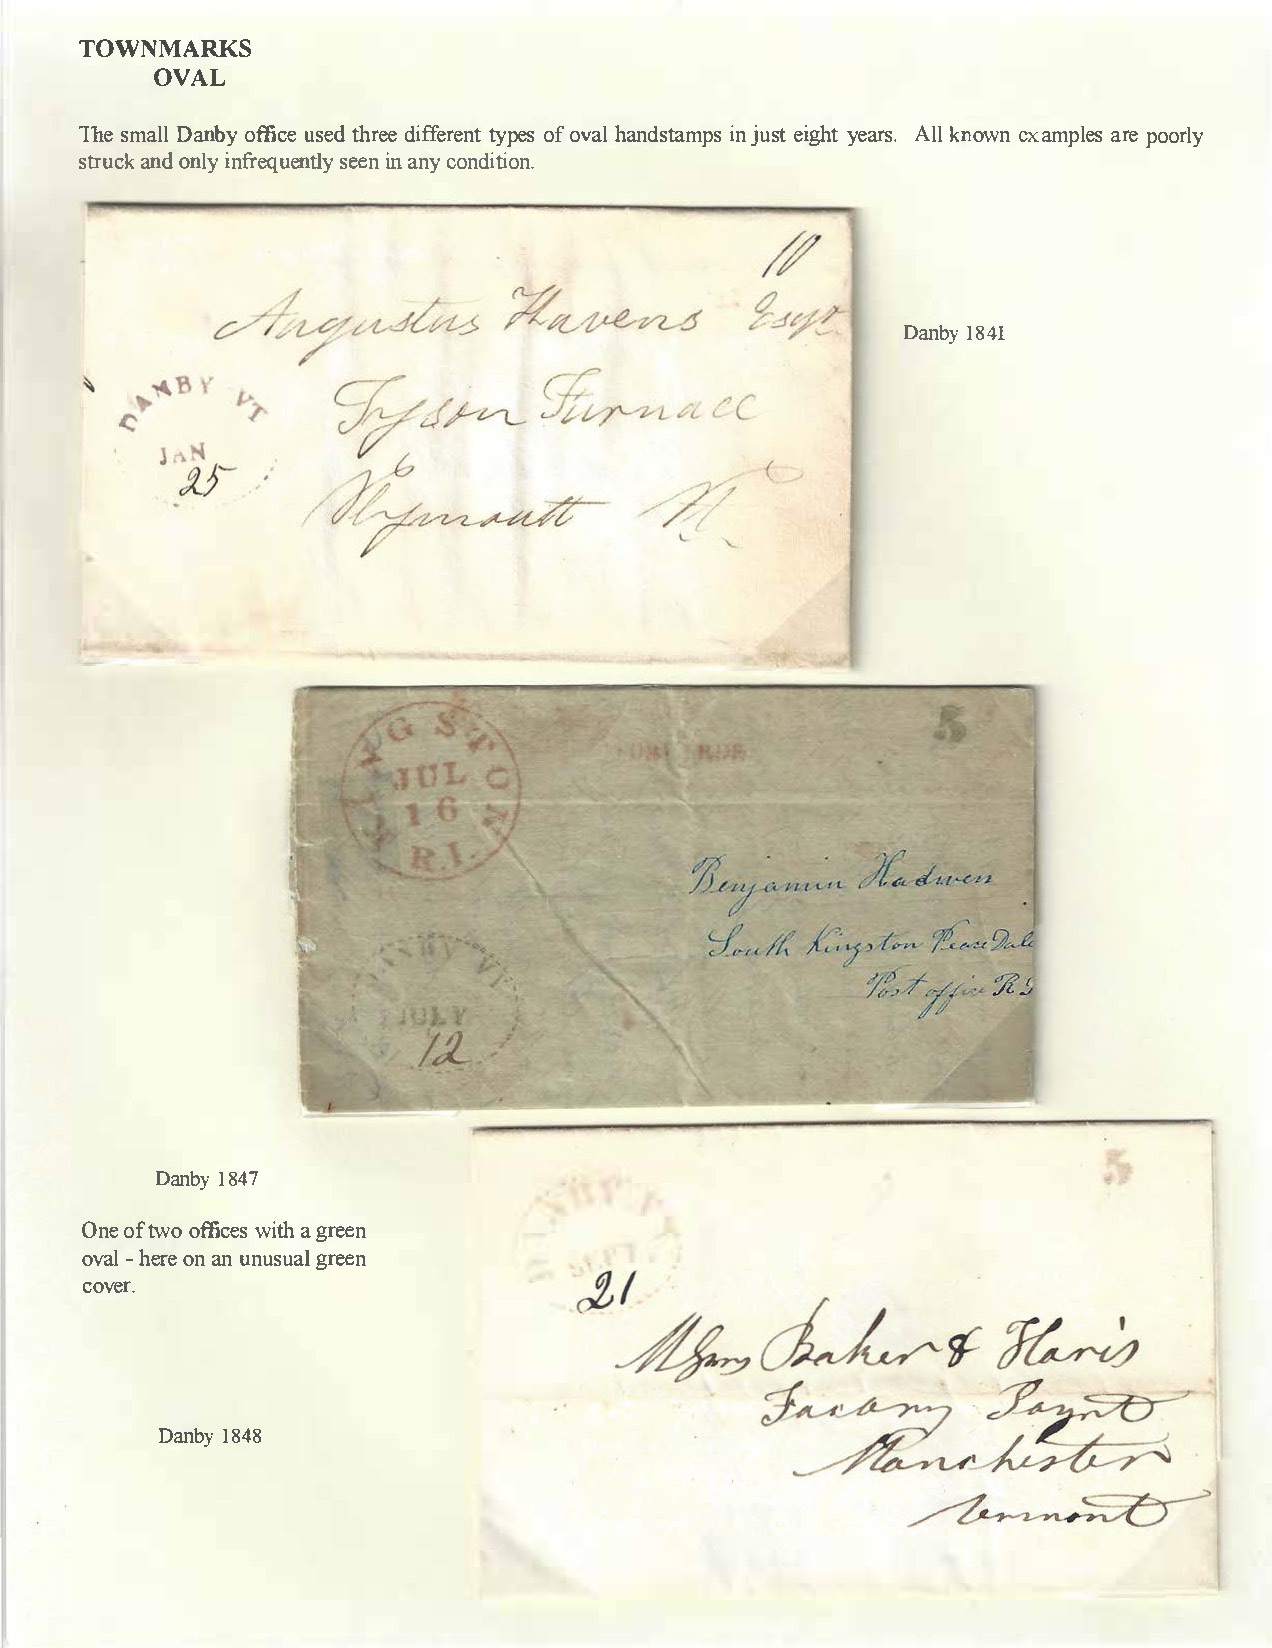 TOWNMARKS
OVAL
The small Danby office used three different types of oval handstamps in just eight years. All known examples are poorly
struck and only infrequently seen in any condition.
10
Augustus Havens Esqr.
Tyson Furnace
Plymouth Vt.
DANBY VT
JAN
25
Danby 1841
KINGSTON
JUL
16
R.I.
5
Benjamin Hadwen
South Kingston Peace Dale
Post office R I
DANBY VT
JULY
12
Danby 1847
One of two offices with a green
oval - here on an unusual green
cover.
5
21
Baker & Haris
Manchester
Vermont
Danby 1848